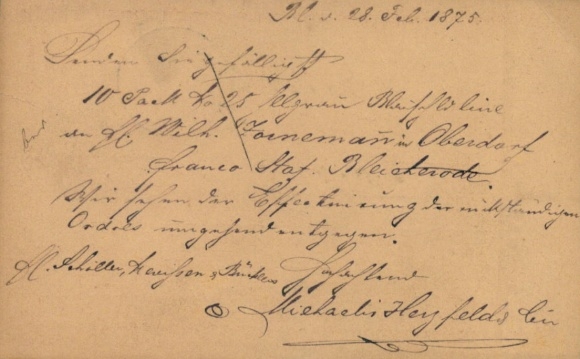 M. d. 28. Feb. 1875.
Senden Sie gefälligst
10 Pack No 25
an H. Wilh. Tornemann in Oberdorf
franco Stat. Bleicherode.
Wir sehen der Effectuirung der rückständigen
Ordres umgehend entgegen.
H. Schiller, &
Hochachtend
Michaelis Herzfelds